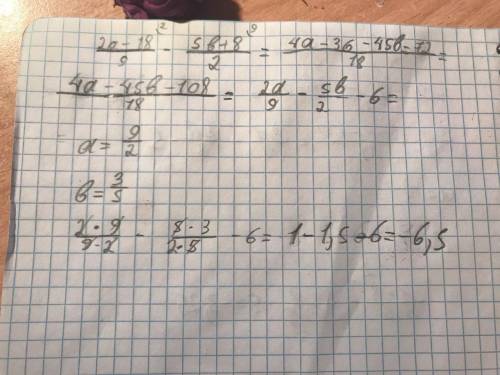 (2a - 18)/9 ² - (5b + 8)/2 ⁹ = (4a - 36 - 45b - 72)/18 =
(4a - 45b - 108)/18 = 2a/9 - 5b/2 - 6 =
a = 9/2
b = 3/5
(2 · 9)/(9 · 2) - (5 · 3)/(2 · 5) - 6 = 1 - 1,5 - 6 = -6,5